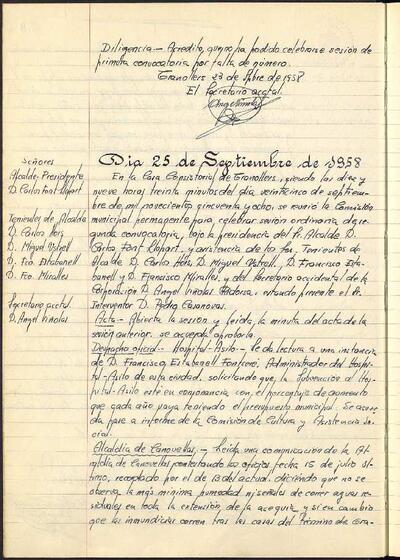 Diligencia.- Acredito, que no ha podido celebrarse sesión de
primera convocatoria por falta de número.
Granollers 23 de Sptbre de 1958
El Secretario acctal.
Señores
Alcalde-Presidente
D. Carlos Font Llopart
Tenientes de Alcalde
D. Carlos
D. Miguel
D. Fco. Estabanell
D. Fco. Miralles
Secretario acctal
D. Angel Viñolas
Dia 25 de Septiembre de 1958
En la Casa Consistorial de Granollers, siendo las diez y
nueve horas treinta minutos del día veinticinco de septiem-
bre de mil novecientos cincuenta y ocho, se reunió la Comisión
municipal permanente para celebrar sesión ordinaria de se-
gunda convocatoria, bajo la presidencia del Sr. Alcalde D.
Carlos Font Llopart, y asistencia de los Sres. Tenientes de
Alcalde D. Carlos D. Miguel D. Francisco Esta-
banell y D. Francisco Miralles, y del Secretario accidental de la
Corporación D. Angel Viñolas estando presente el Sr.
Interventor D. Pedro Casanovas.
Acta.- Abierta la sesión y leída, la minuta del acta de la
sesión anterior, se acuerda aprobarla.
Despacho oficial.- Hospital-Asilo.- Se da lectura a una instancia
de D. Francisco Estabanell Administrador del Hospi-
tal-Asilo de esta ciudad, solicitando que, la Subvención al Hos-
pital-Asilo esté en consonancia con, el porcentaje de aumento
que cada año vaya teniendo el presupuesto municipal. Se acuer-
da pase a informe de la Comisión de Cultura y Asistencia So-
cial.
Alcaldía de Canovellas.- Leída una comunicación de la Al-
caldía de Canovellas contestando los oficios fecha 15 de julio úl-
timo, recordado por el de 13 del actual, diciendo que no se
observa la más mínima humedad ni señales de correr aguas re-
siduales en toda la extensión de la acequia y sí en cambio
que las inmundicias corren tras las casas del término de Gra-